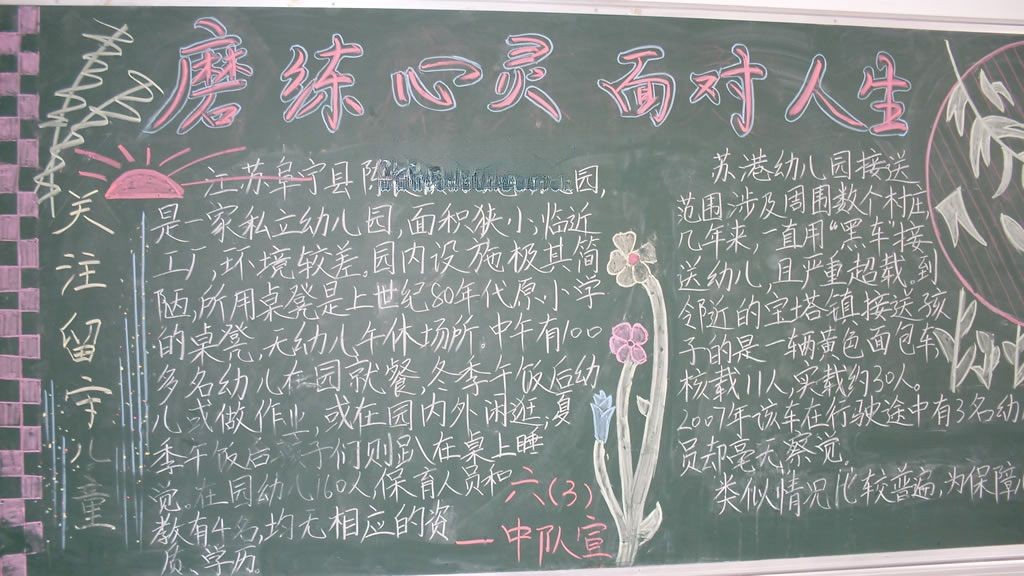 磨练心灵 面对人生
关注留守儿童
江苏阜宁县陈 园,
是一家私立幼儿园,面积狭小,临近
工厂,环境较差。园内设施极其简
陋,所用桌凳是上世纪80年代原小学
的桌凳,无幼儿午休场所,中午有100
多名幼儿在园就餐,冬季午饭后幼
儿或做作业,或在园内外闲逛,夏
季午饭后孩子们则趴在桌上睡
觉。在园幼儿160人,保育人员和
教有4名,均无相应的资
质、学历。
六(3)
中队宣
苏港幼儿园接送
范围涉及周围数个村庄
几年来,一直用“黑车”接
送幼儿,且严重超载。到
邻近的宝塔镇接送孩
子的是一辆黄色面包车
核载11人,实载约30人。
2007年该车在行驶途中有3名幼
员却毫无察觉
类似情况比较普遍,为保障